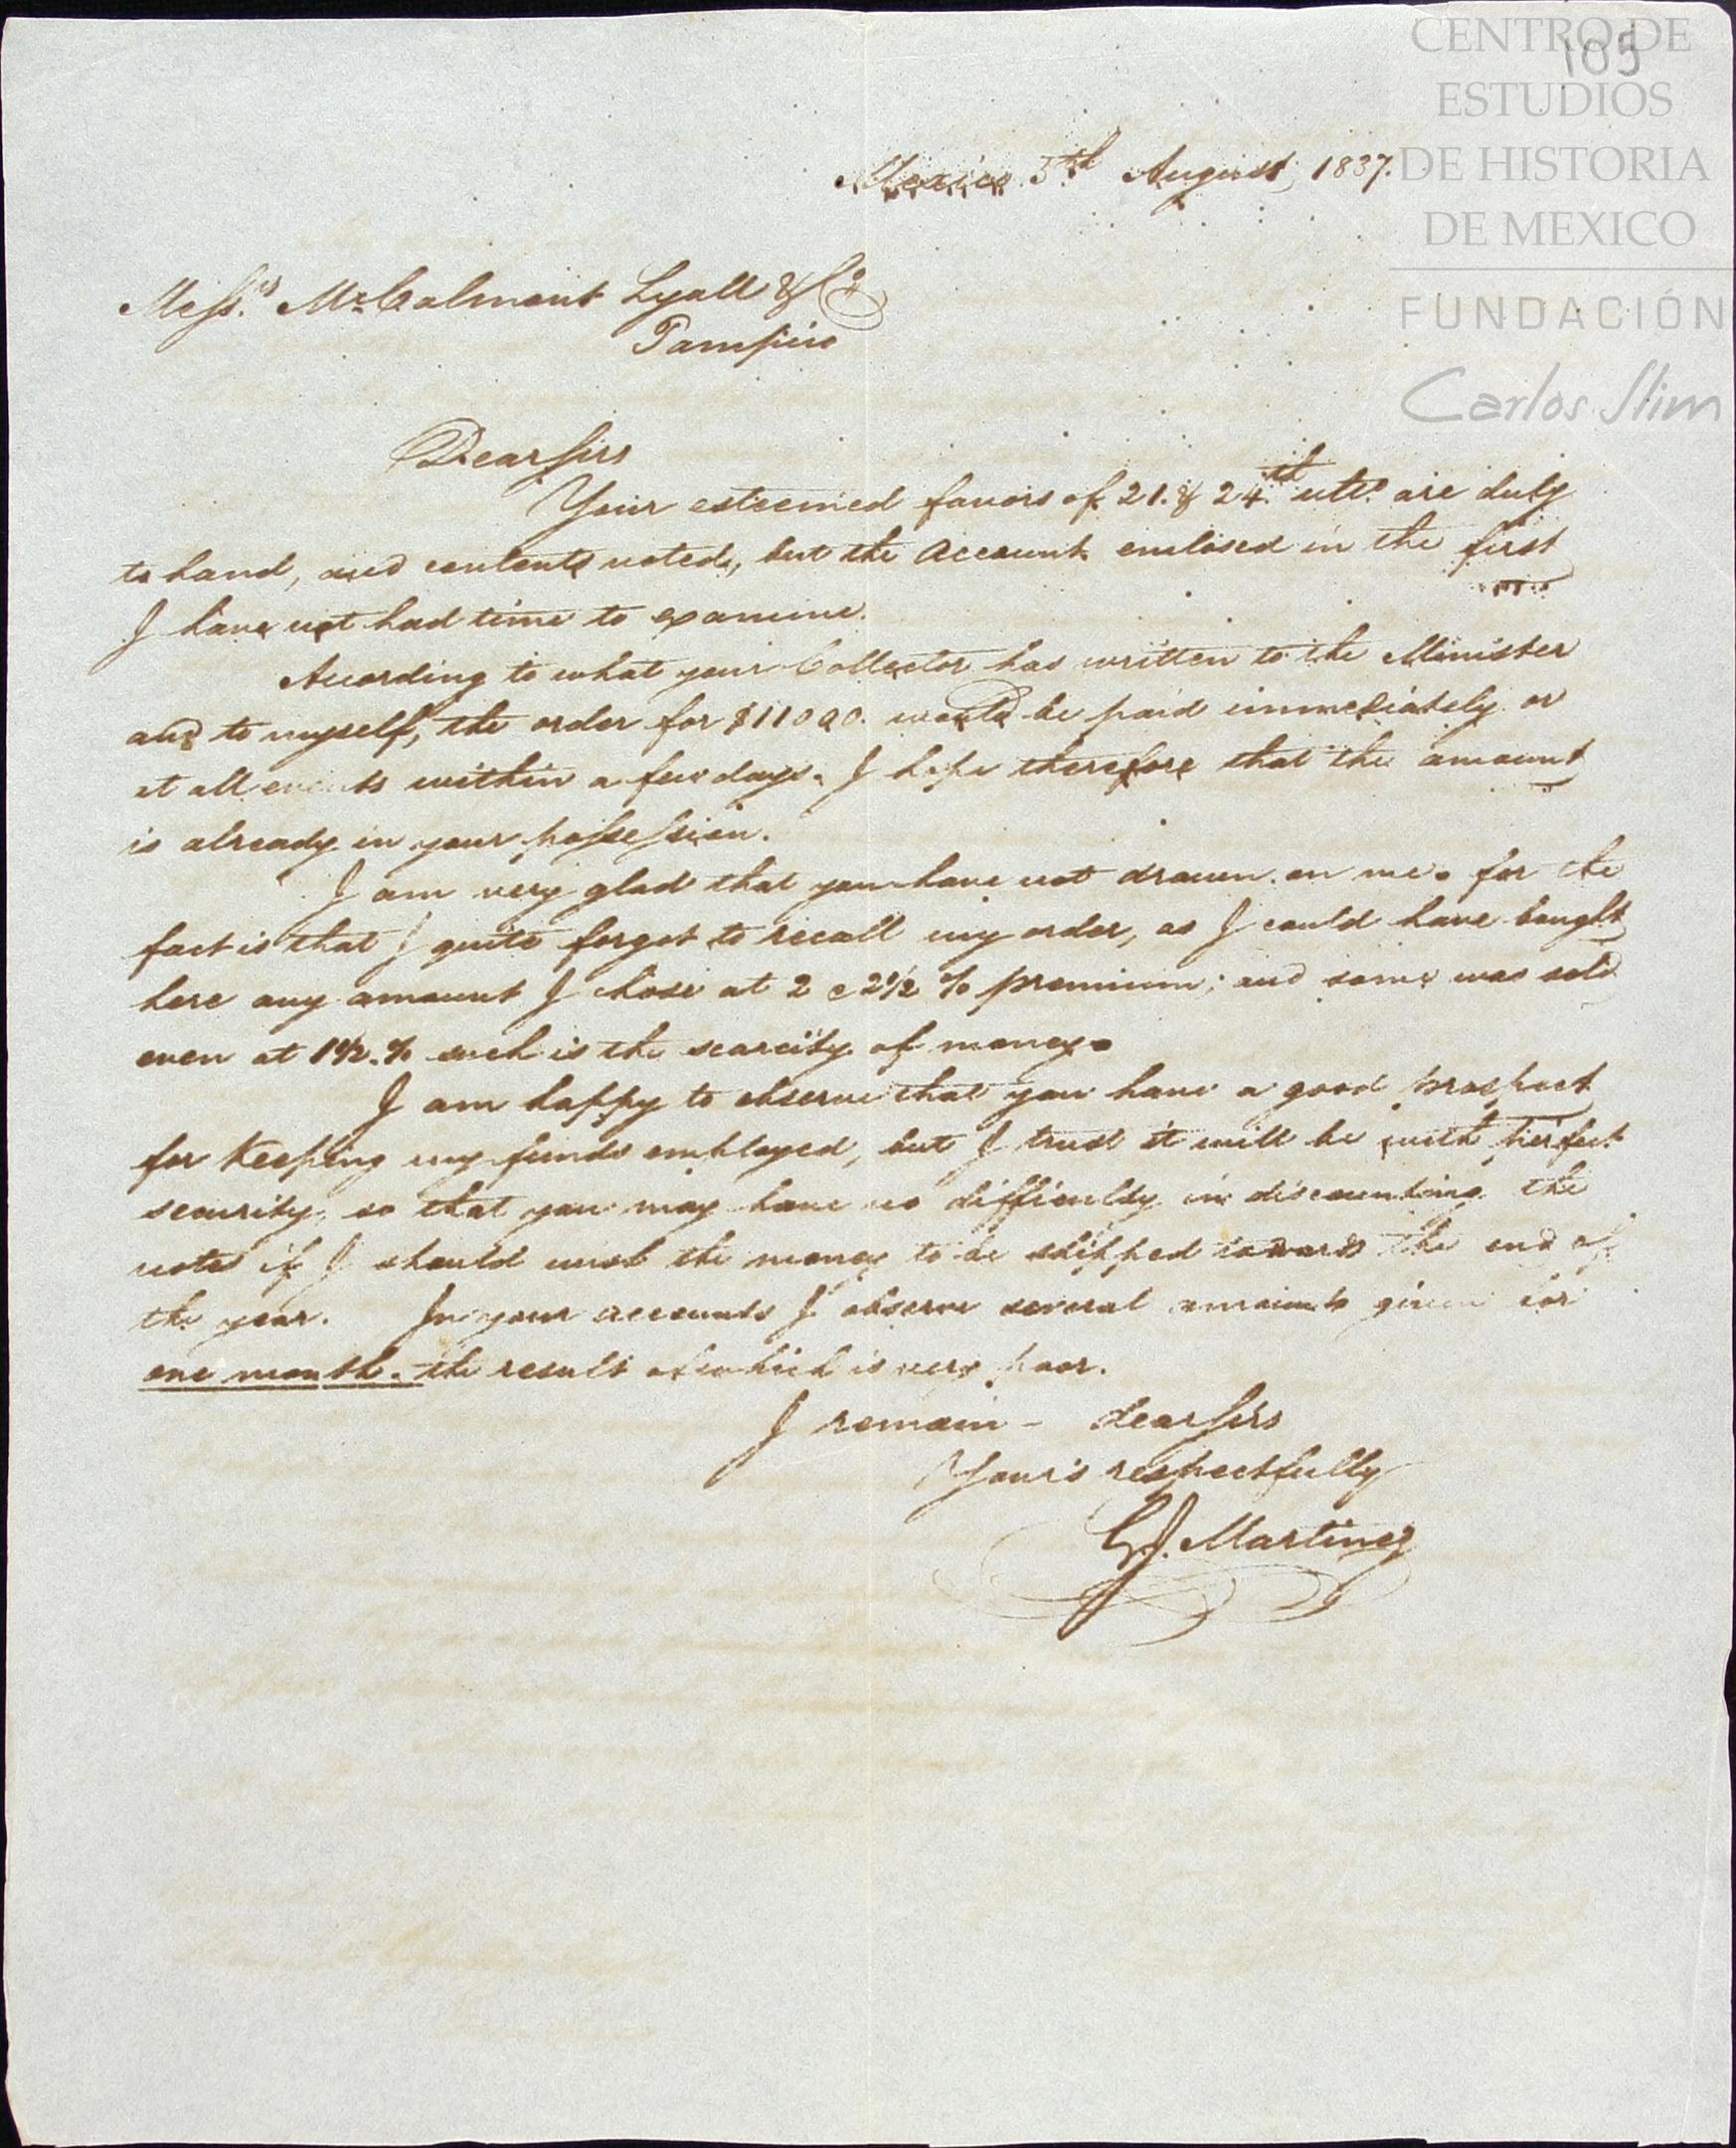 CENTRO DE
ESTUDIOS
DE HISTORIA
DE MEXICO
FUNDACIÓN
Carlos Slim
105
Mexico 5th August, 1837.
Messrs. McCalmont Lyall & Co
Tampico
Dear Sirs
Your esteemed favors of 21. & 24th ulto. are duly
to hand, and contents noted, but the Account enclosed in the first
I have not had time to examine.
According to what your Collector has written to the Minister
and to myself, the order for $11000. would be paid immediately or
at all events within a few days. I hope therefore that the amount
is already in your possession.
I am very glad that you have not drawn on me. for the
fact is that I quite forgot to recall my order, as I could have bought
here any amount I chose at 2 @ 2½ % premium; and some was sold
even at 1½. % such is the scarcity of money.
I am happy to observe that you have a good prospect
for keeping my funds employed, but I trust it will be with perfect
security, so that you may have no difficulty in discounting the
notes if I should want the money to be shipped towards the end of
the year. In your accounts I observe several amounts given for
one month. the result of which is very poor.
I remain - dear Sirs
Your's respectfully
G.J. Martinez